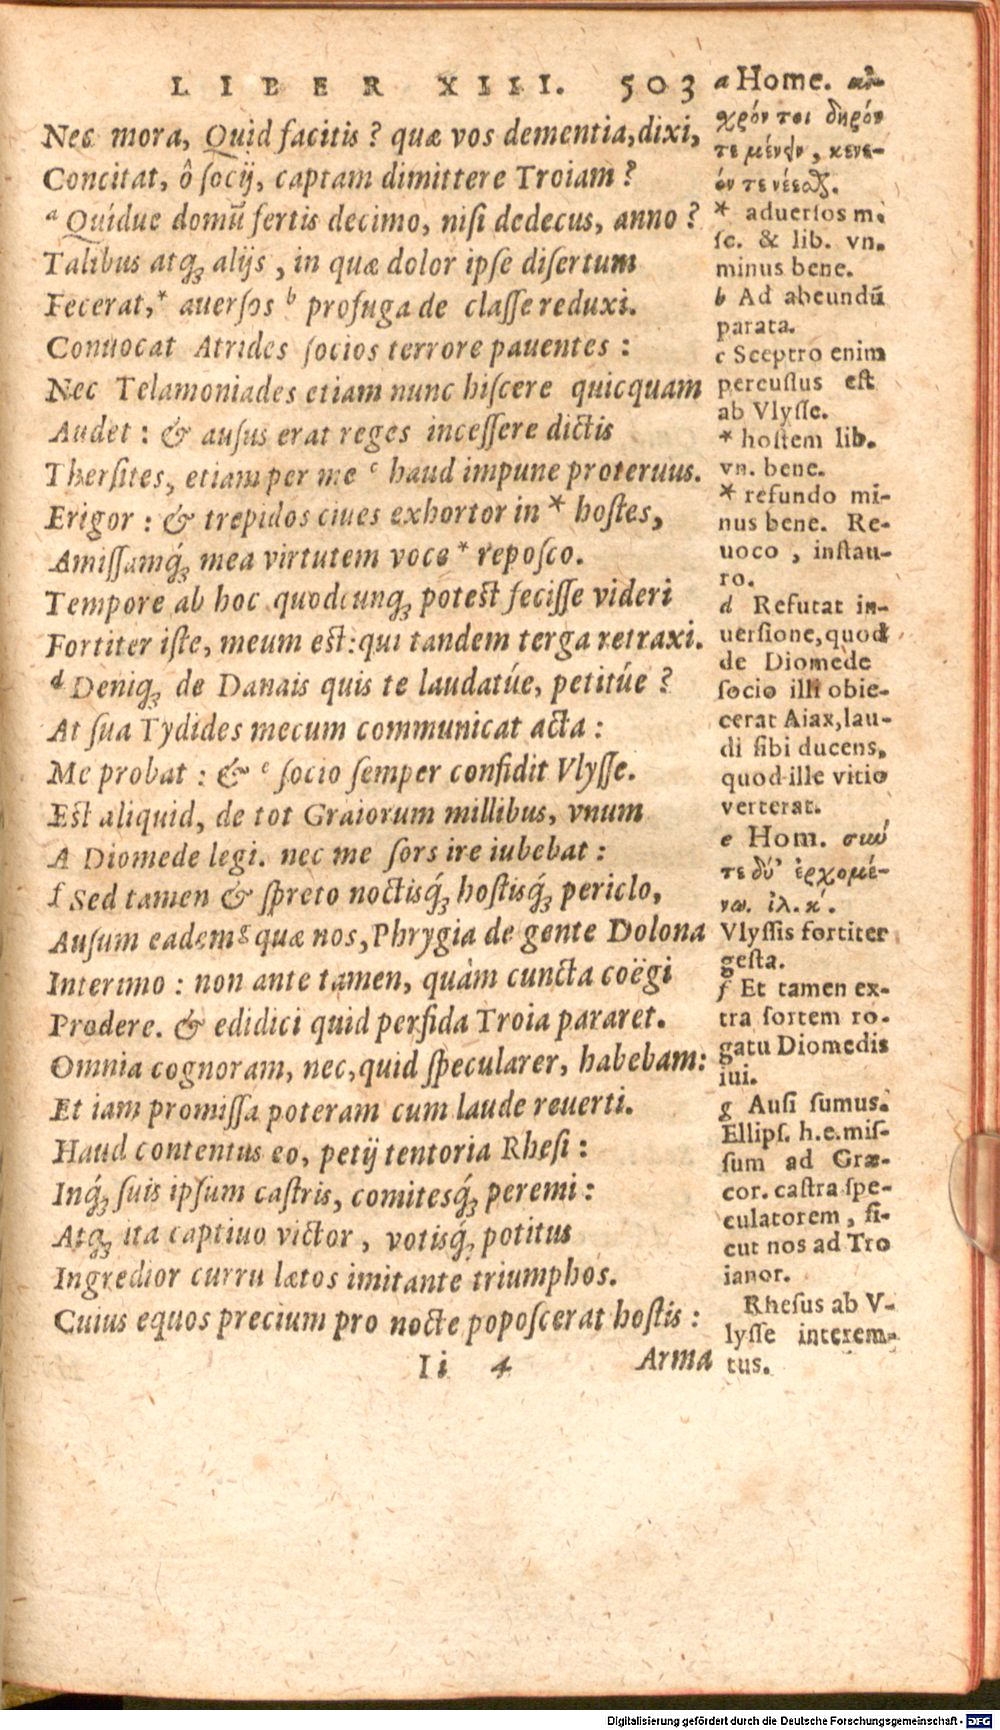 LIBER XIII. 503
Nec mora, Quid facitis? quæ vos dementia, dixi,
Concitat, ô socij, captam dimittere Troiam?
a Quidue domū fertis decimo, nisi dedecus, anno?
Talibus atq; alijs, in quæ dolor ipse disertum
Fecerat,* auersos b profuga de classe reduxi.
Conuocat Atrides socios terrore pauentes:
Nec Telamoniades etiam nunc hiscere quicquam
Audet: & ausus erat reges incessere dictis
Thersites, etiam per me c haud impune proteruus.
Erigor: & trepidos ciues exhortor in * hostes,
Amissamq́; mea virtutem voce * reposco.
Tempore ab hoc quodcunq; potest fecisse videri
Fortiter iste, meum est: qui tandem terga retraxi.
d Deniq; de Danais quis te laudatúe, petitúe?
At sua Tydides mecum communicat acta:
Me probat: & e socio semper confidit Vlysse.
Est aliquid, de tot Graiorum millibus, vnum
A Diomede legi. nec me sors ire iubebat:
f Sed tamen & spreto noctisq́; hostisq́; periclo,
Ausum eadem g quæ nos, Phrygia de gente Dolona
Interimo: non ante tamen, quàm cuncta coëgi
Prodere. & edidici quid perfida Troia pararet.
Omnia cognoram, nec, quid specularer, habebam:
Et iam promissa poteram cum laude reuerti.
Haud contentus eo, petij tentoria Rhesi:
Inq́; suis ipsum castris, comitesq́; peremi:
Atq; ita captiuo victor, votisq́; potitus
Ingredior curru lætos imitante triumphos.
Cuius equos precium pro nocte poposcerat hostis:
Ii 4 Arma
a Home. αἰ-
χρόν τοι δηρόν
τε μένειν, κενε-
όν τε νέεσθαι.
* aduersos m.
sc. & lib. vn.
minus bene.
b Ad abeundū
parata.
c Sceptro enim
percussus est
ab Vlysse.
* hostem lib.
vn. bene.
* refundo mi-
nus bene. Re-
uoco, instau-
ro.
d Refutat in-
uersione, quod
de Diomede
socio illi obie-
cerat Aiax, lau-
di sibi ducens,
quod ille vitio
verterat.
e Hom. σιωύ
τε δύ' ἐρχομέ-
νω. ἰλ. κ'.
Vlyssis fortiter
gesta.
f Et tamen ex-
tra sortem ro-
gatu Diomedis
iui.
g Ausi sumus.
Ellips. h.e. mis-
sum ad Græ-
cor. castra spe-
culatorem, si-
cut nos ad Tro
ianor.
Rhesus ab V-
lysse interem-
tus.
Digitalisierung gefördert durch die Deutsche Forschungsgemeinschaft - DFG